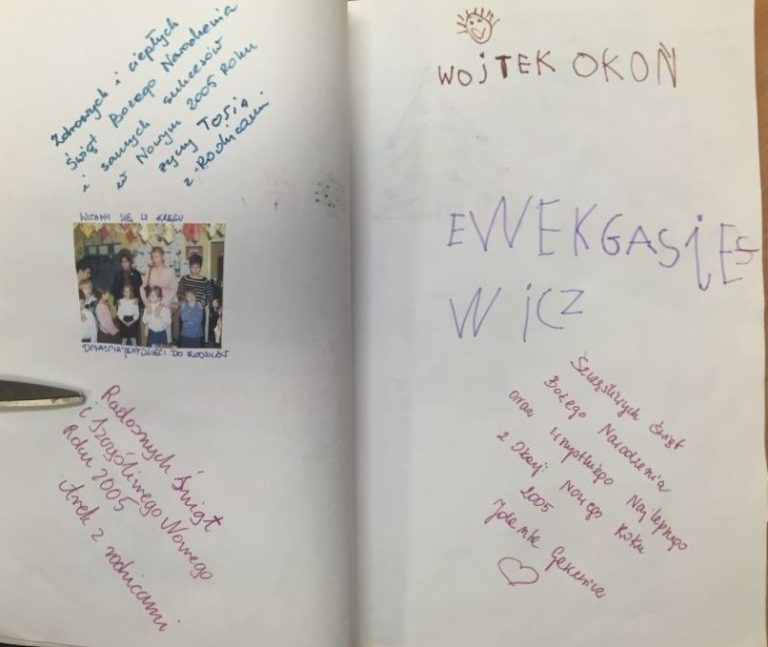 Zdrowych i ciepłych
Świąt Bożego Narodzenia
i samych sukcesów
w Nowym 2005 Roku
życzy Tosia
z Rodzicami
WITAMY SIĘ W KRĘGU
DZIECI DO RODZICÓW
Radosnych Świąt
i Szczęśliwego Nowego
Roku 2005
Arek z rodzicami
WOJTEK OKOŃ
EWEKGASIES
WICZ
Szczęśliwych Świąt
Bożego Narodzenia
oraz wszystkiego Najlepszego
z Okazji Nowego Roku
2005